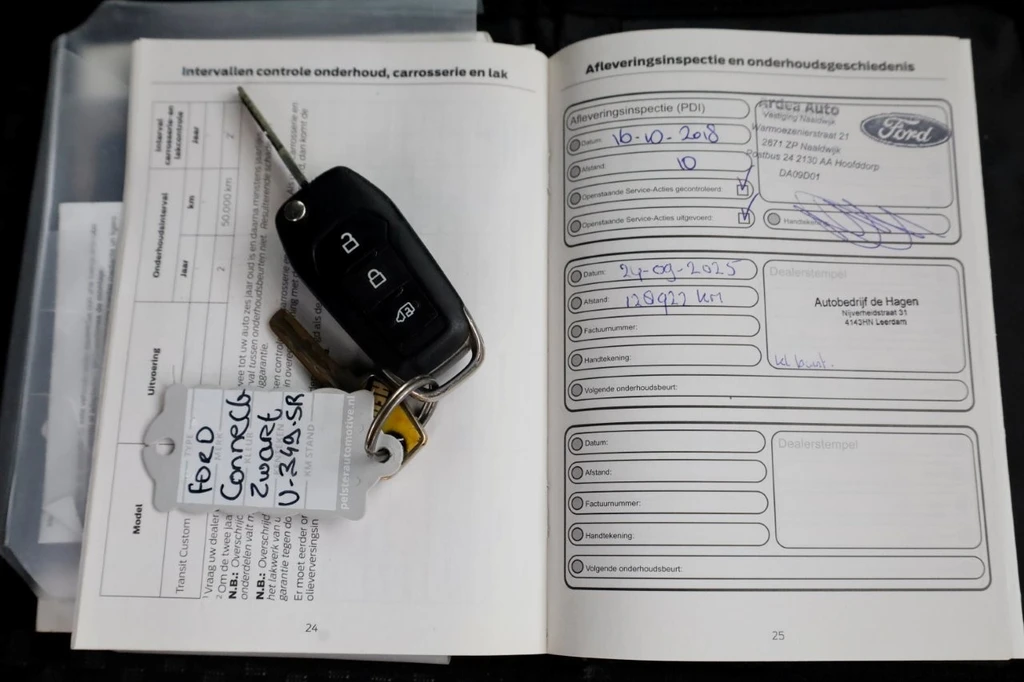 Intervallen controle onderhoud, carrosserie en lak
Model
Uitvoering
Onderhoudsinterval
Interval carrosserie-en lakcontrole
Jaar
km
Jaar
Transit Custom
2
50.000 km
2
¹ Vraag uw dealer
² Om de twee jaa
N.B.: Overschrijd
onderdelen valt
N.B.: Overschrijd
het lakwerk van u
garantie tegen do
Er moet eerder
olieverversingsin
FORD
Connect
Zwart
V-349-SR
KM STAND
pelsterautomotive.nl
24
Afleveringsinspectie en onderhoudsgeschiedenis
Afleveringsinspectie (PDI)
Datum: 16-10-2018
Afstand: 10
Openstaande Service-Acties gecontroleerd:
Openstaande Service-Acties uitgevoerd:
Ardea Auto
Vestiging Naaldwijk
Warmoezenierstraat 21
2671 ZP Naaldwijk
Postbus 24 2130 AA Hoofddorp
DA09D01
Ford
Datum: 24-09-2025
Afstand: 128922 km
Factuurnummer:
Handtekening:
Volgende onderhoudsbeurt:
Dealerstempel
Autobedrijf de Hagen
Nijverheidstraat 31
4143HN Leerdam
kl. burt.
Datum:
Afstand:
Factuurnummer:
Handtekening:
Volgende onderhoudsbeurt:
Dealerstempel
25